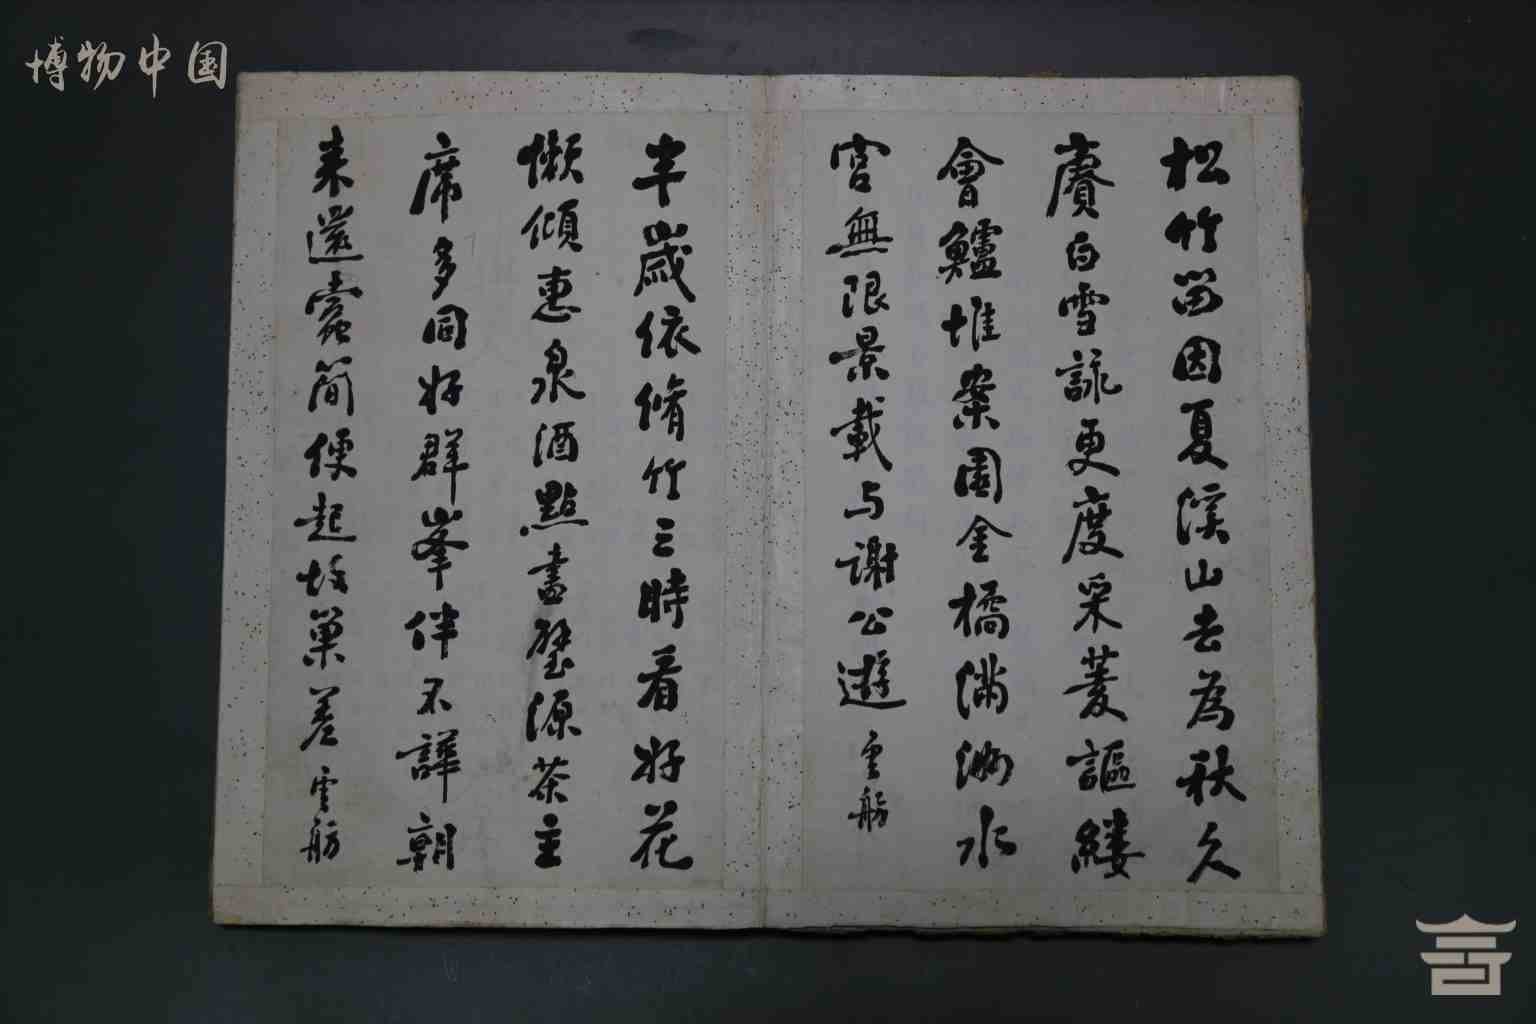 博物中国
松竹留因夏溪山去為秋久
賡白雪詠更度采菱謳縷
會鱸堆案團金橘滿洲水
宮無限景載与謝公遊 雲舫
半歲依脩竹三時看好花
懶傾惠泉酒點盡壑源茶主
席多同好群峯伴不譁朝
来還蠹簡便起故巢差 雲舫